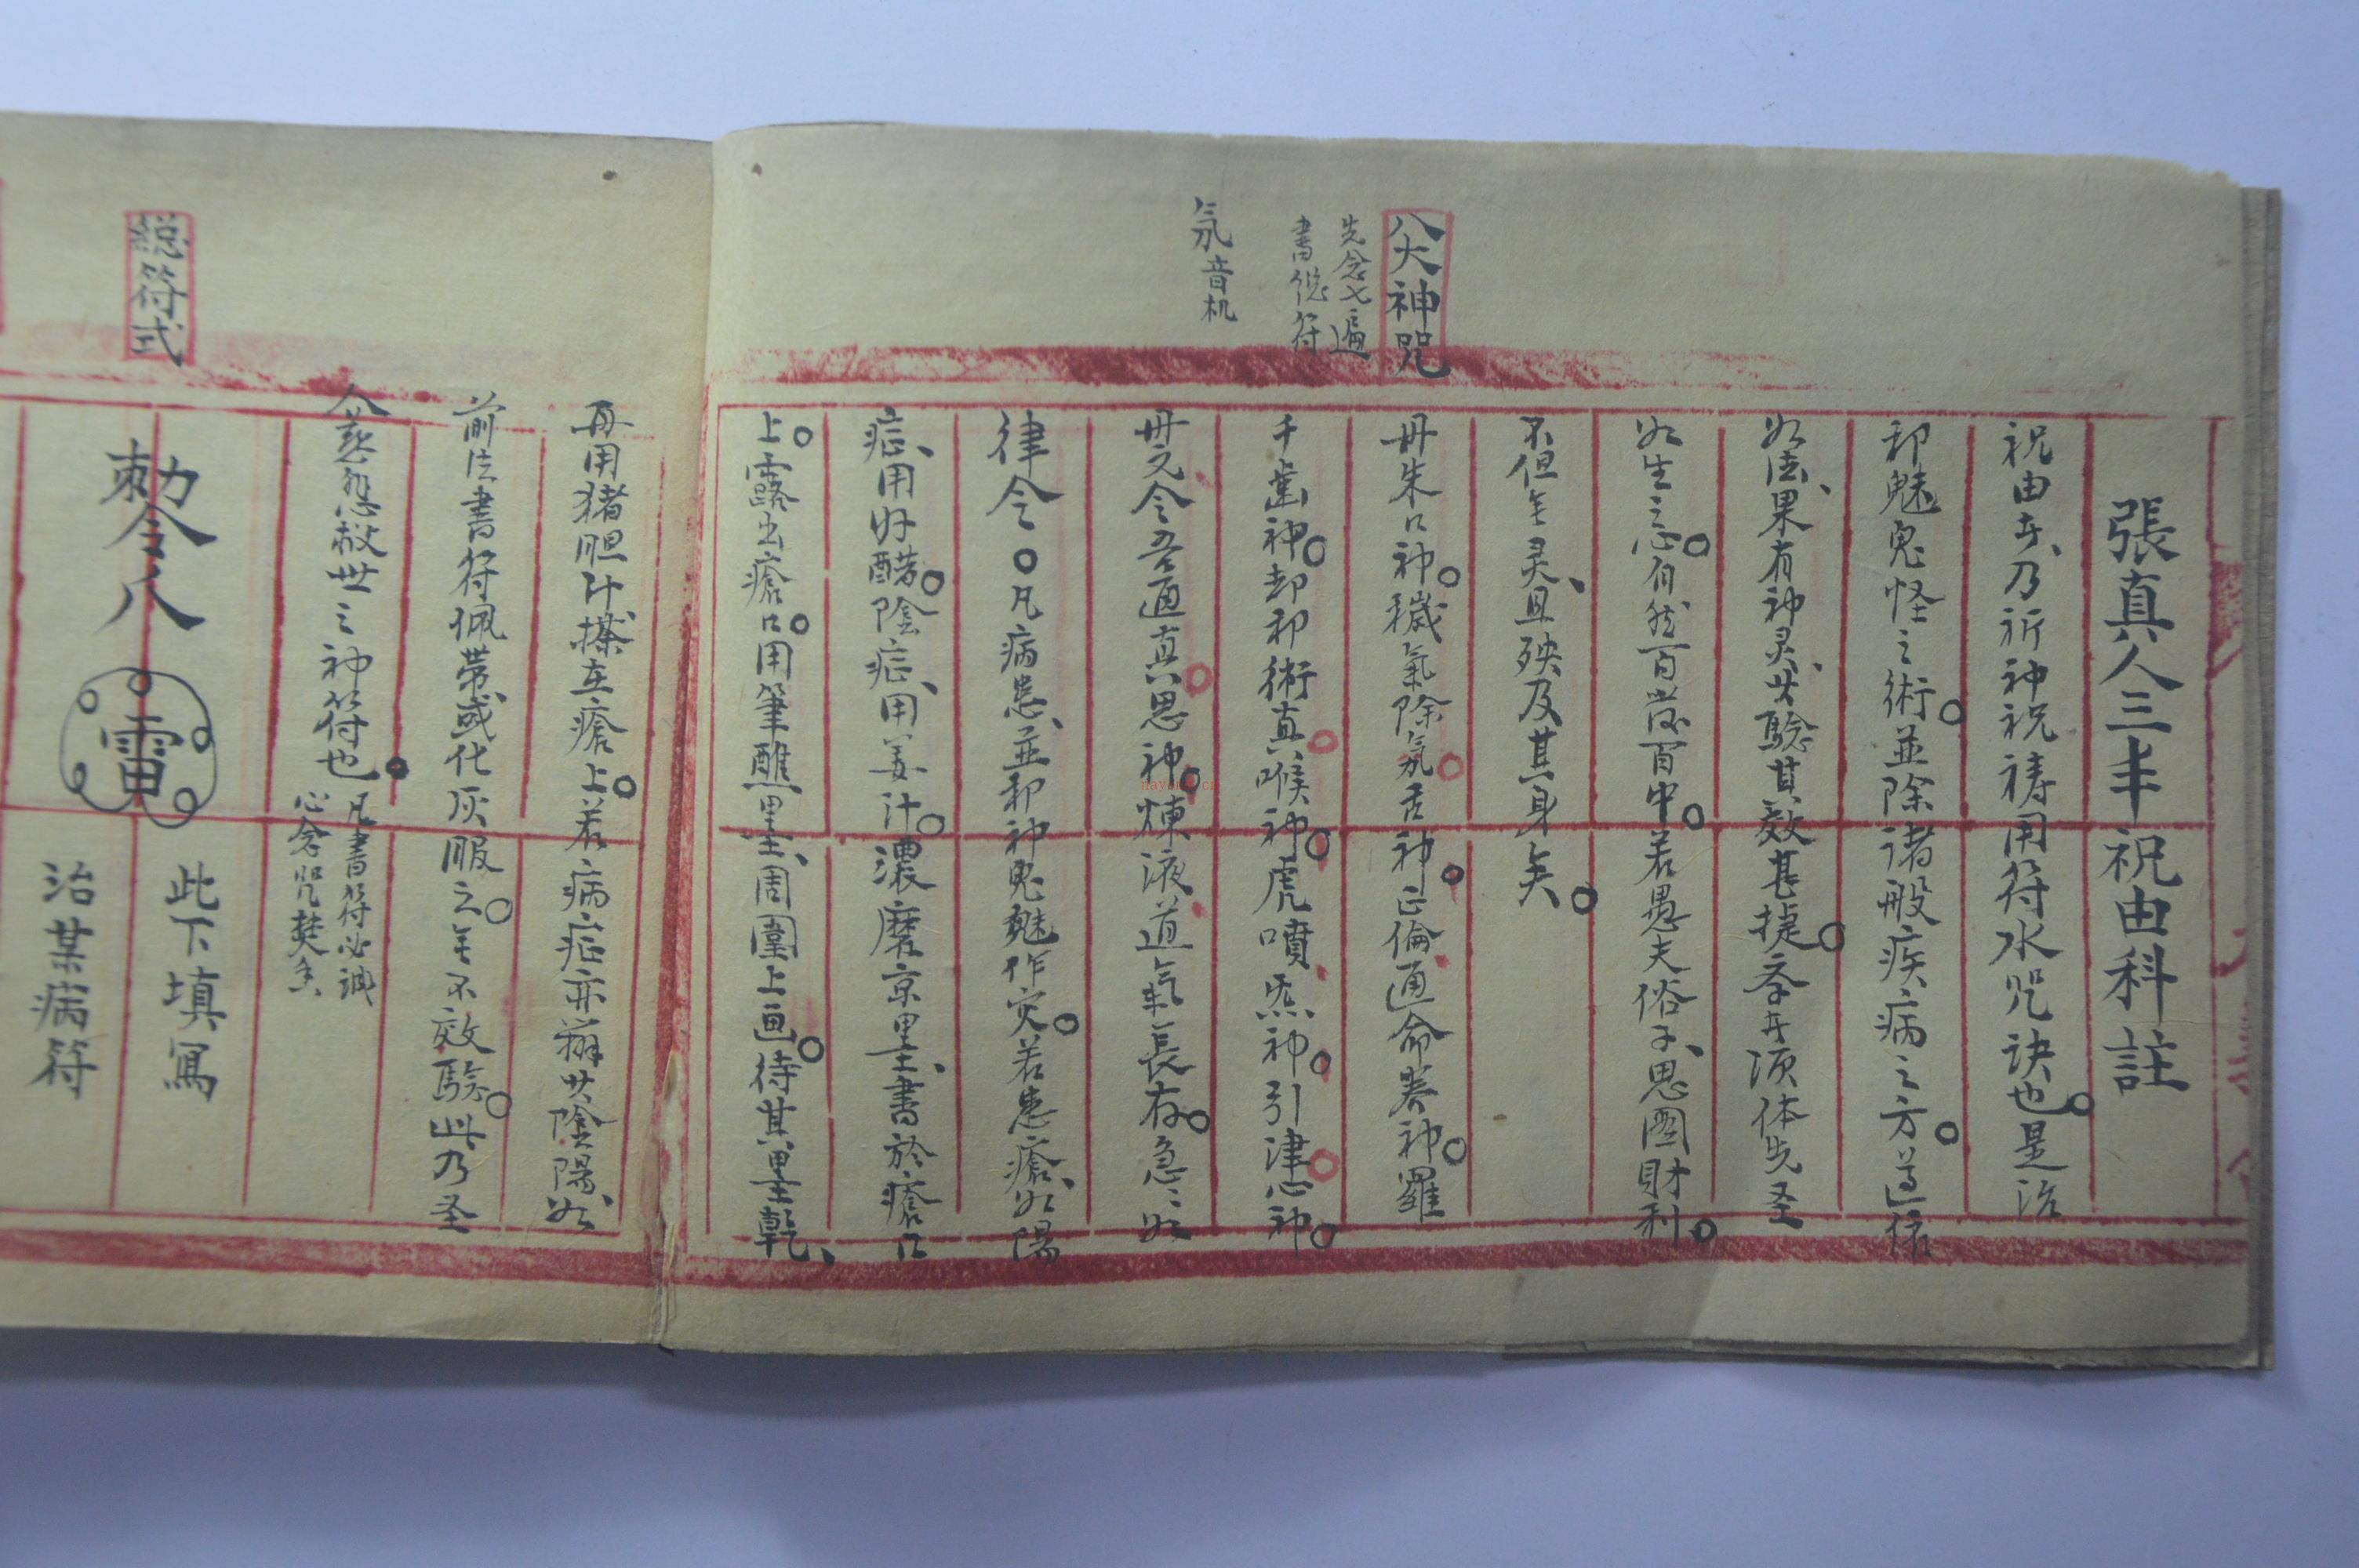 張真人三丰祝由科註
祝由者、乃祈神祝禱用符水咒訣也。是治
邪魅鬼怪之術。並除諸般疾病之方。遵依
如法、果有神灵、其驗其效甚捷。
如生之念。自然百發百中。若愚夫俗子、思圖財利。
不但无灵、且殃及其身矣。
八大神咒
先念七遍
書總符
丹朱口神。穢氣除氛。舌神。正倫、通命養神。羅
千齒神。却邪術真。喉神。虎噴、炁神。引津。心神。
丹元令吾通真。思神。煉液、道氣長存。急々如
氛音机
律令。凡病患、並邪神鬼魅作灾。若患瘡、如陽
症、用好醋。陰症、用姜汁。濃磨京墨、書於瘡口
上。露出瘡口。用筆蘸墨、周圍上画。待其墨乾、
再用猪胆汁搽在瘡上。若病症亦辨其陰陽、如
前法書符佩帶、或化灰服之。无不效驗。此乃圣
人慈悲救世之神符也。
凡書符必誠
心念咒焚香
総符式
勅令八
雷
此下填寫
治某病符